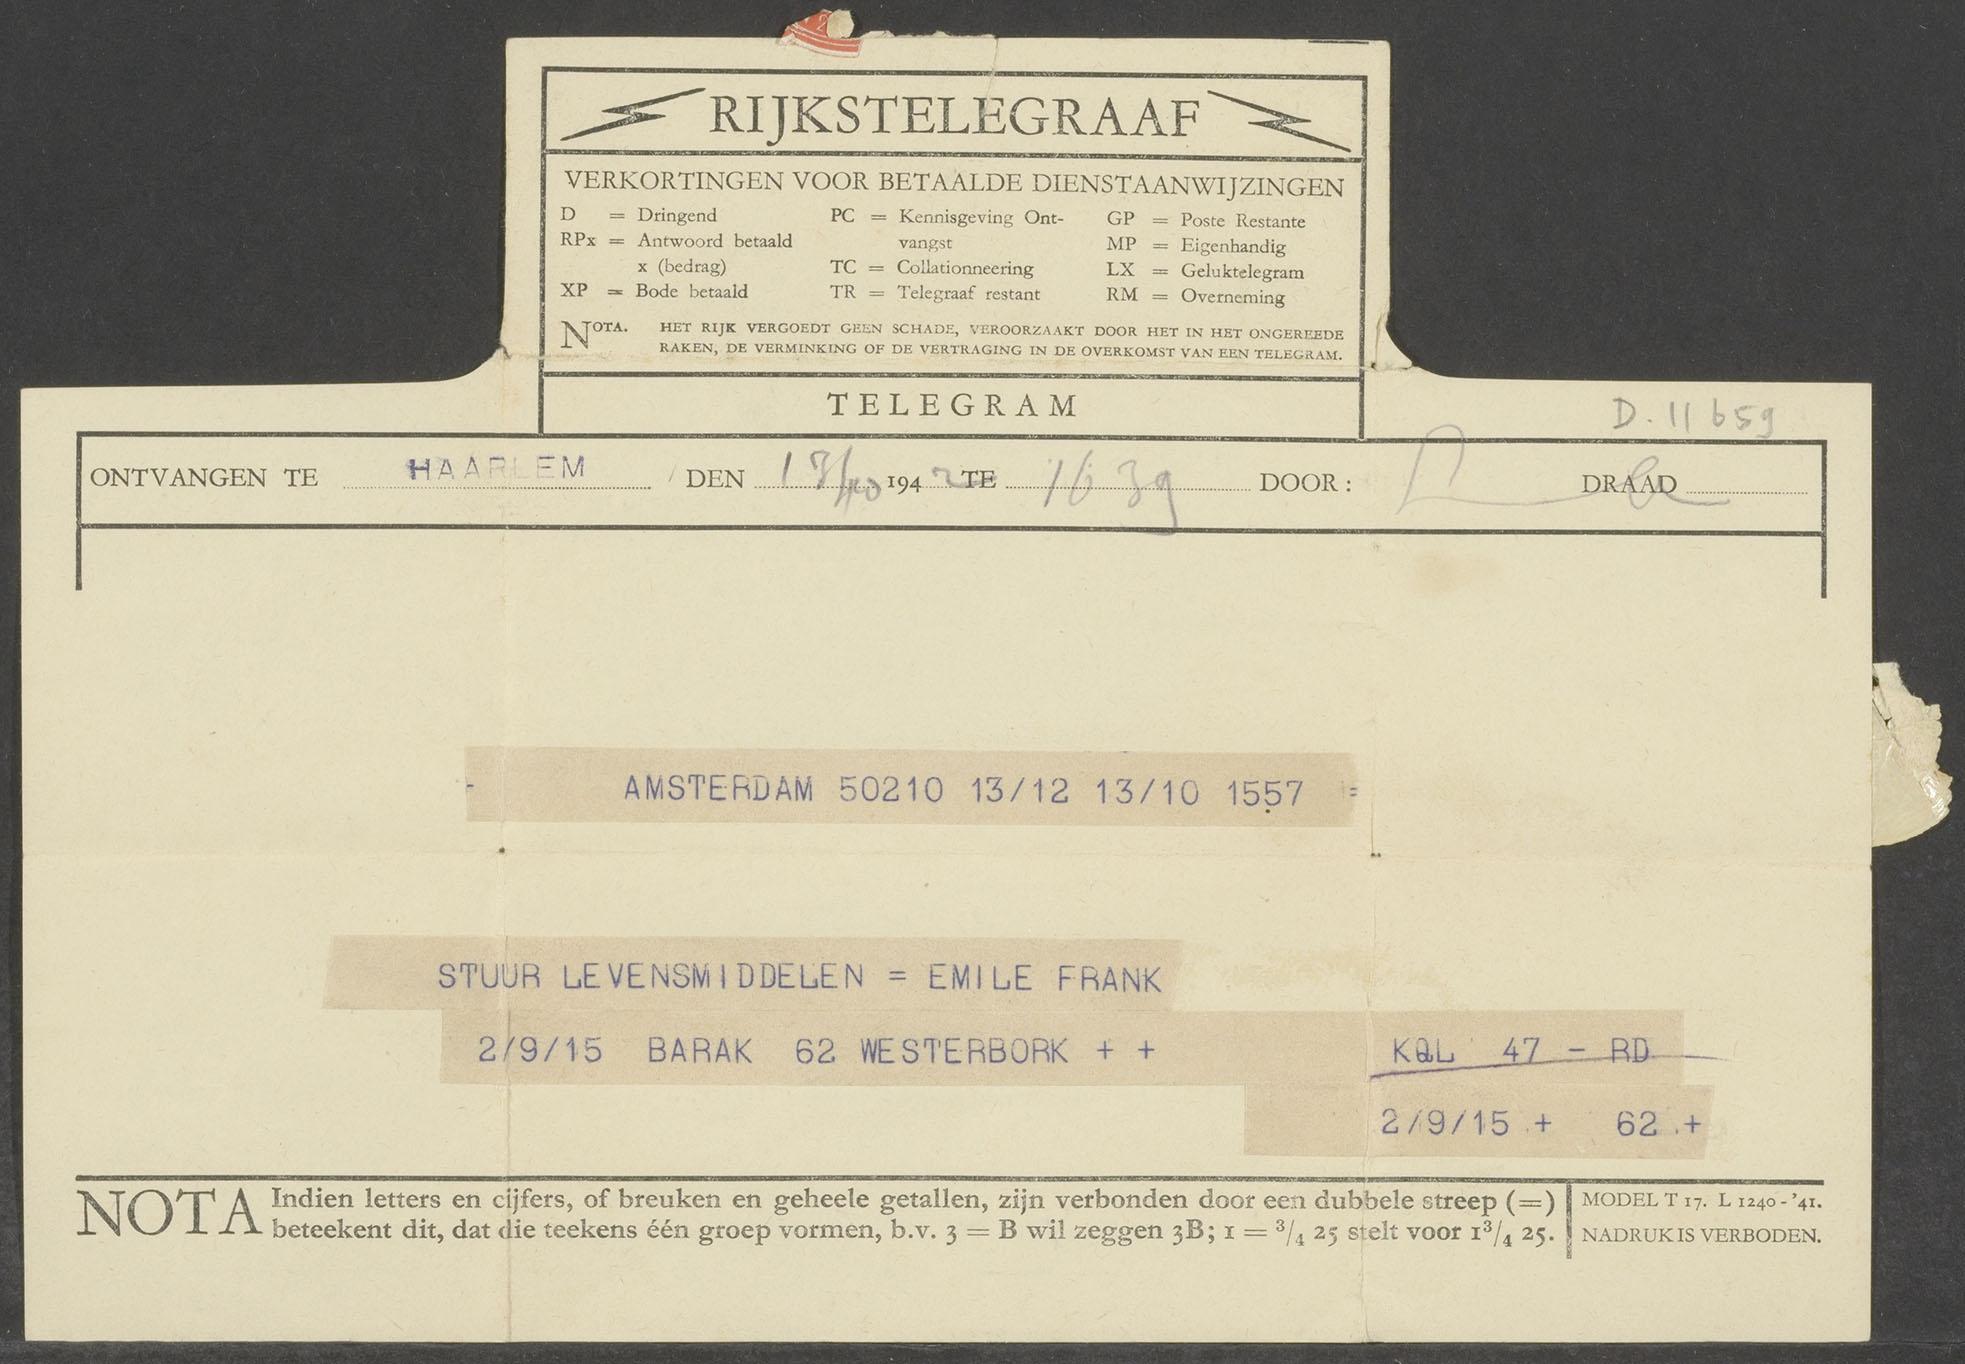 RIJKSTELEGRAAF
VERKORTINGEN VOOR BETAALDE DIENSTAANWIJZINGEN
D = Dringend
RPx = Antwoord betaald
x (bedrag)
XP = Bode betaald
PC = Kennisgeving Ont-
vangst
TC = Collationneering
TR = Telegraaf restant
GP = Poste Restante
MP = Eigenhandig
LX = Geluktelegram
RM = Overneming
NOTA. HET RIJK VERGOEDT GEEN SCHADE, VEROORZAAKT DOOR HET IN HET ONGEREEDE
RAKEN, DE VERMINKING OF DE VERTRAGING IN DE OVERKOMST VAN EEN TELEGRAM.
TELEGRAM
D. 11659
ONTVANGEN TE HAARLEM DEN 13/10 1942 TE 1639 DOOR: DRAAD
- AMSTERDAM 50210 13/12 13/10 1557 =
STUUR LEVENSMIDDELEN = EMILE FRANK
2/9/15 BARAK 62 WESTERBORK + + KQL 47 - RD
2/9/15 + 62 +
NOTA Indien letters en cijfers, of breuken en geheele getallen, zijn verbonden door een dubbele streep (=)
beteekent dit, dat die teekens één groep vormen, b.v. 3 = B wil zeggen 3B; 1 = 3/4 25 stelt voor 1 3/4 25.
MODEL T 17. L 1240-'41.
NADRUK IS VERBODEN.